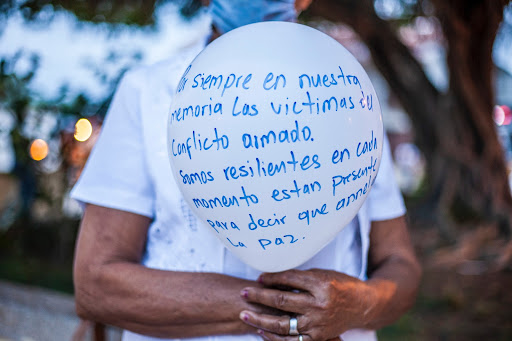 Por siempre en nuestra
memoria Las victimas del
Conflicto armado.
Somos resilientes en cada
momento estan presente
para decir que anhe
La paz.